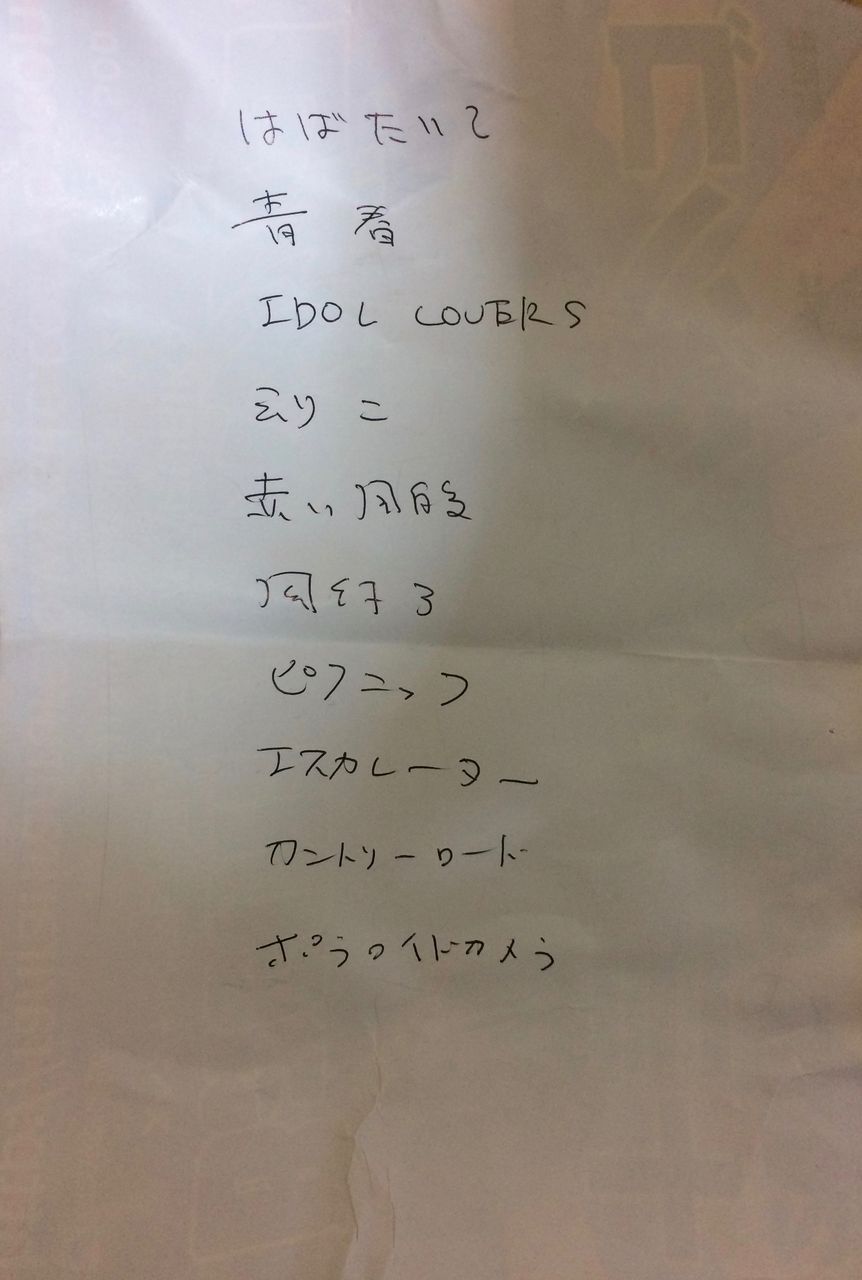 はばたいて
青春
IDOL LOVERS
えりこ
赤い風船
風紋る
ピクニック
エスカレーター
カントリーロード
ポラロイドカメラ